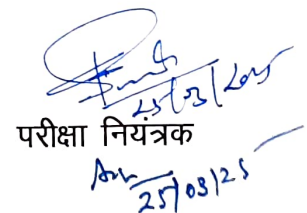 25/03/2025
परीक्षा नियंत्रक
25/03/25